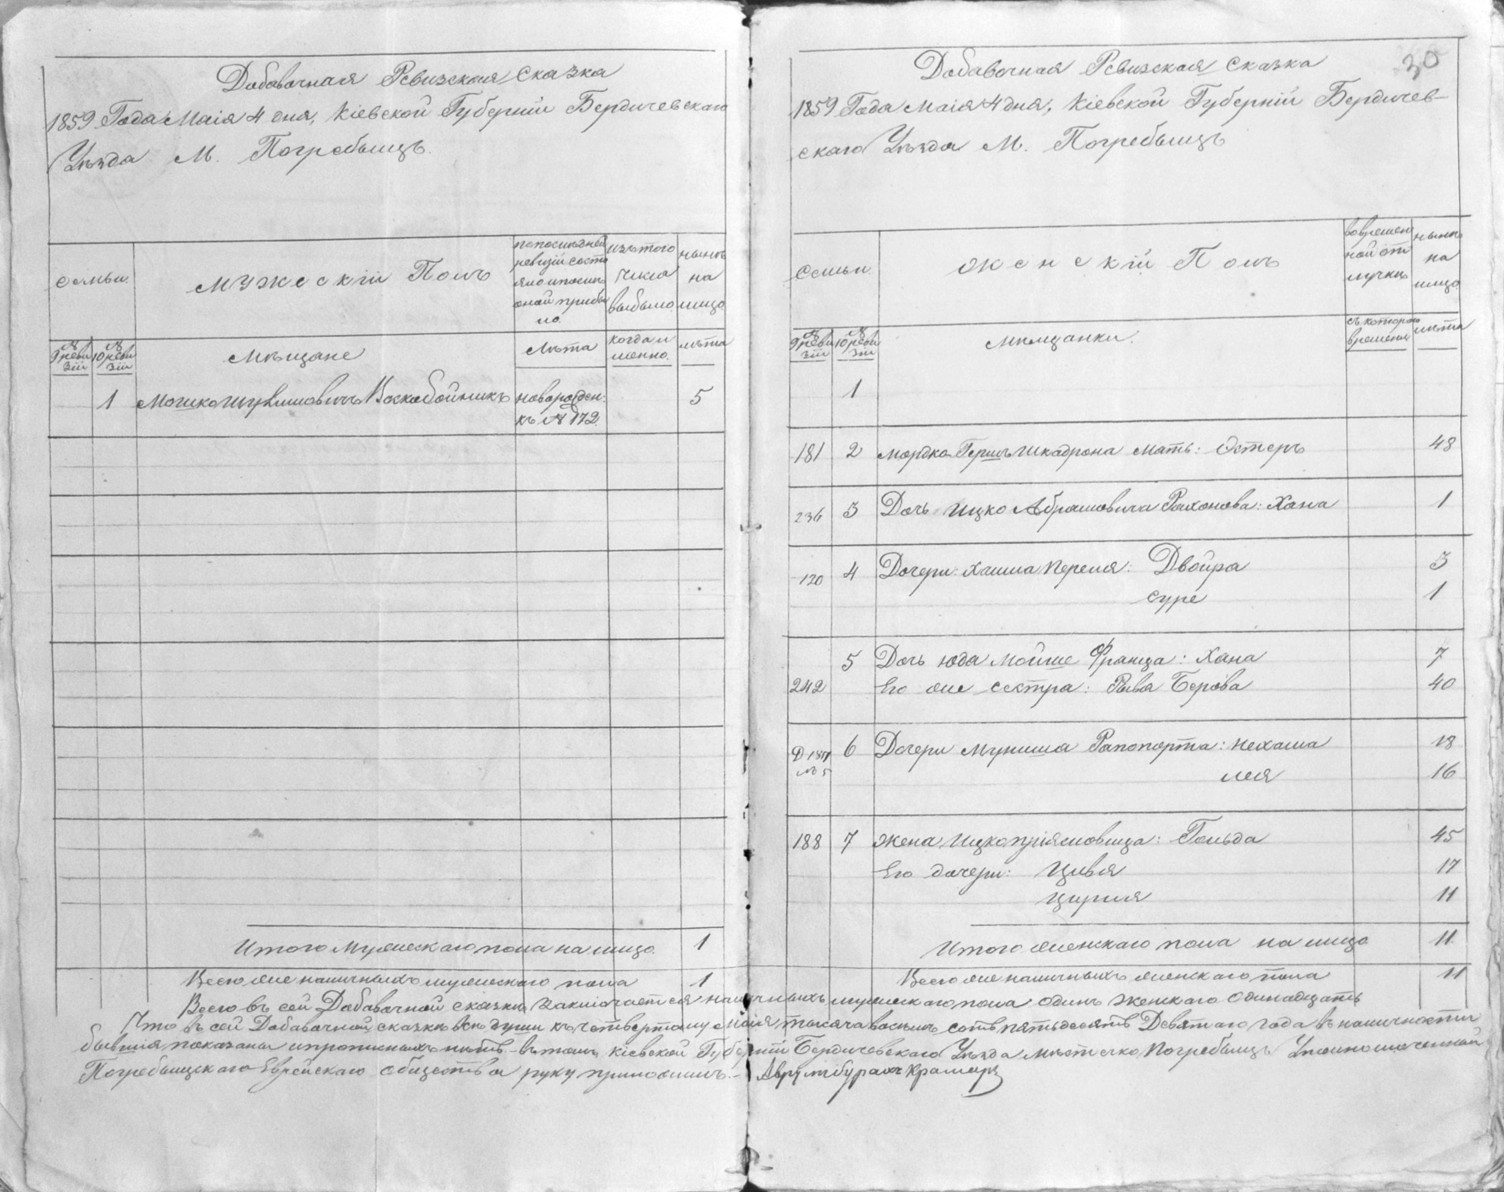 Дабавочная Ревизская Сказка
1859 Года Маія 4 дня, Кіевской Губерній Бердичевскаго
Уѣзда М. Погребыщъ.
Семьи
Мужескій Полъ
изъ того числа выбыло
нынѣ на лицо
№ 9 реви зіи
№ 10 реви зіи
Мѣщане
Лѣта
когда и менно.
лѣта
1 Мошко Шулимовичъ Воскобойникъ новорожден. 5
къ № 172
Итого Мужескаго пола на лицо 1
Всего же наличныхъ мужескаго пола 1
30
Дабавочная Ревизская Сказка
1859 Года Маія 4 дня, Кіевской Губерній Бердичев-
скаго Уѣзда М. Погребыщъ
Семьи
Женскій Полъ
во времен ной от лучкѣ
нынѣ на лицо
№ 9 реви зіи
№ 10 реви зіи
Мѣщанки.
съ котораго времени
лѣта
1
181 2 Мордко Гершъ Шкадрона Мать: Эстеръ 48
236 3 Дочь Ицко Абрамовича Рахонова: Хана 1
120 4 Дочери: Хаима Переля: Двойра 3
Суре 1
5 Дочь Юда Мойше Франца: Хана 7
242 Его же сестра: Рива Берова 40
6 Дочери Муниша Рапопорта: Нехама 18
№ 5 Лея 16
188 7 Жена Ицко Пріясловица: Гольда 45
Его дочери: Цивя 17
Цирля 11
Итого женскаго пола на лицо 11
Всего же наличныхъ женскаго пола 11
Всего въ сей Дабавочной сказки заключается наличныхъ мужескаго пола одинъ женскаго одинадцать
Что въ сей Дабавочной сказкѣ всѣ души къ четвертому Маія тысяча восемь сотъ пятьдесятъ Девятаго года въ наличности
бывшія показаны и прописныхъ нѣтъ - въ томъ Кіевской Губерній Бердичевскаго Уѣзда мѣстечко Погребыщъ Уполномоченный
Погребыщскаго Еврейскаго общества руку приложилъ. - Аврумъ Бурахъ Крамаръ